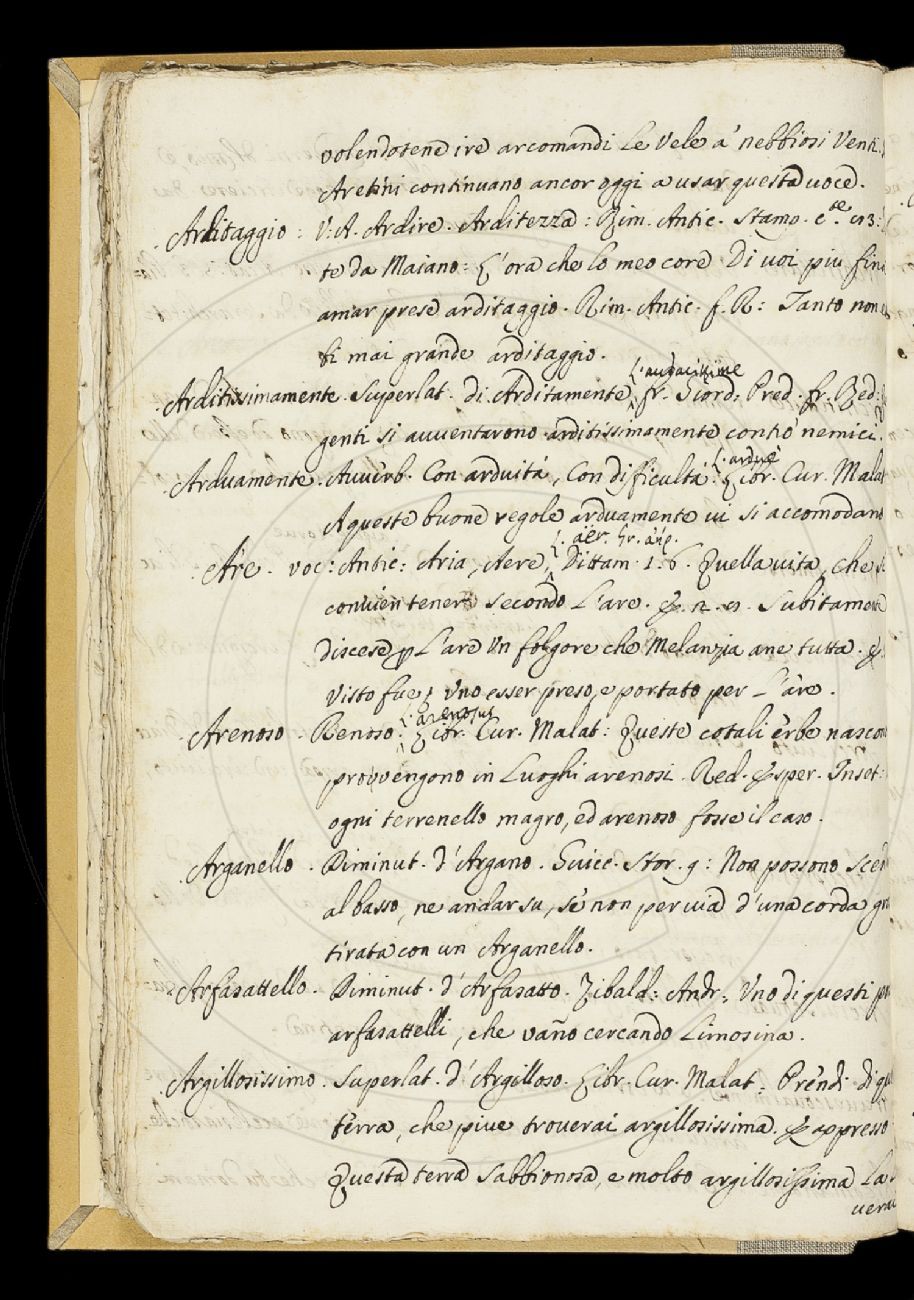 volendosene ire arcomandi Le Vele a' nebbiosi Venti.
Aretini continuano ancor oggi a usar questa uoce.
Arditaggio: V: A. Ardire. Arditezza: Rim. Antic. Stamp. c.
te da Maiano: L'ora che lo meo core Di uoi piu fin
amar prese arditaggio. Rim. Antic. f. R: Tanto non
ti mai grande arditaggio.
L. audacissime
Arditissimamente. Superlat. di Arditamente fr. Giord: Pred. fr. Red:
genti si auuentarono arditissimamente contro nemici.
L. arduè
Arduamente. Auuerb. Con arduità, Con difficultà: Libr. Cur. Malat
A queste buone regole arduamente ui si accomodano
L. aër. Gr. ἀήρ.
Are. voc: Antic: Aria, Aere, Dittam. 1. 6. Quella uita, che
conuien tener secondo L'are. & n. Subitamente
discese p L'are Un folgore che Melanzia ane tutta. &
Visto fue, Uno esser preso, e portato per L'are.
L. arenosus
Arenoso. Renoso: Libr. Cur. Malat: Queste cotali erbe nascon
provvengono in Luoghi arenosi. Red. esper. Inset:
ogni terrenello magro, ed arenoso fosse il caso.
Arganello. Diminut. d'Argano. Guicc. Stor. 9: Non possono
al basso, ne andar su, se non per uia d'una corda
tirata con un Arganello.
Arfasattello. Diminut. d'Arfasatto. Zibald: Andr: Uno di questi
arfasattelli, che vano cercando Limosina.
Argillosissimo. Superlat. d'Argilloso. Libr. Cur. Malat: Prendi di
terra, che piue troverai argillosissima. & appresso
Questa terra Sabbionosa, e molto argillosissima La